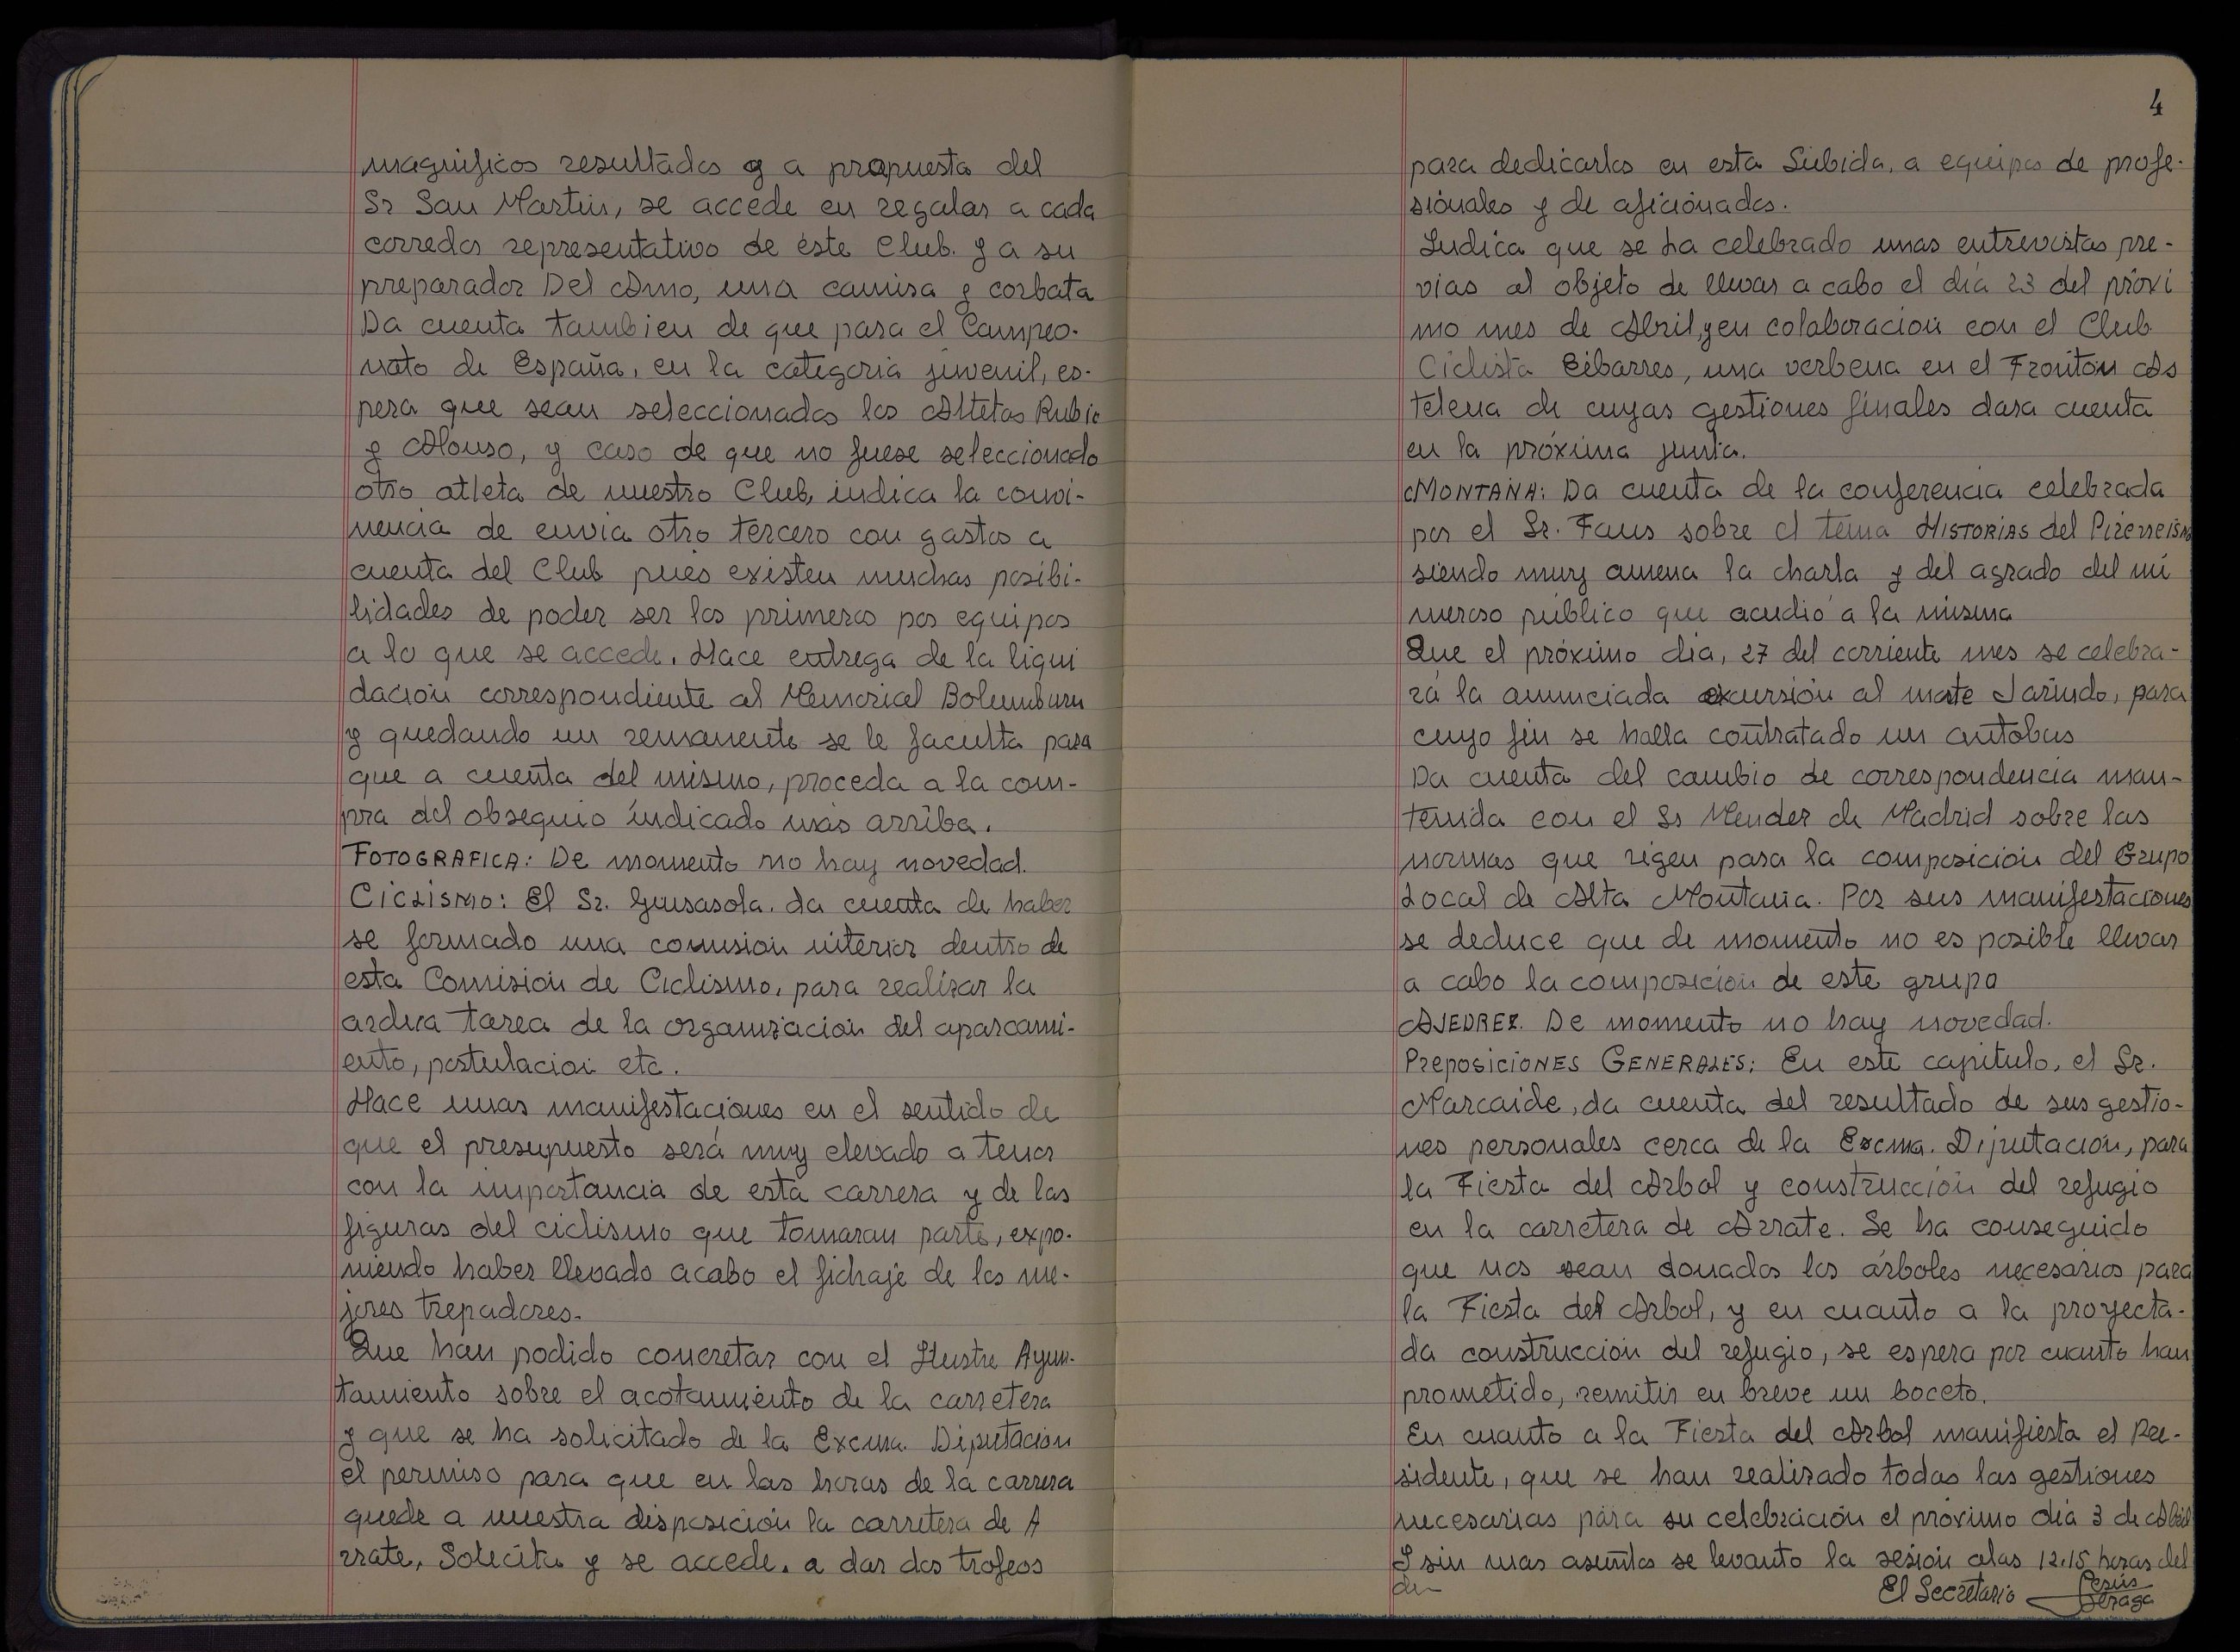 magnificos resultados y a propuesta del
Sr San Martin, se accede en regalar a cada
corredor representativo de éste Club. y a su
preparador Del Amo, una camisa y corbata
Da cuenta tambien de que para el Campeo-
nato de España, en la categoria juvenil, es-
pera que sean seleccionados los Altetas Rubio
y Alonso, y caso de que no fuese seleccionado
otro atleta de nuestro Club, indica la convi-
nencia de envia otro tercero con gastos a
cuenta del Club pués existen muchas posibi-
lidades de poder ser los primeros por equipos
a lo que se accede. Hace entrega de la liqui
dación correspondiente al Memorial Bolumburu
y quedando un remanente se le faculta para
que a cuenta del mismo, proceda a la com-
pra del obsequio indicado más arriba.
FOTOGRAFICA: De momento no hay novedad.
CICLISMO: El Sr. Gunsasola. da cuenta de haber
se formado una comision interior dentro de
esta Comisión de Ciclismo, para realizar la
ardua tarea de la organización del aparcami-
ento, postulacion etc.
Hace unas manifestaciones en el sentido de
que el presupuesto será muy elevado a tenor
con la importancia de esta carrera y de las
figuras del ciclismo que tomaran parte, expo-
niendo haber llevado acabo el fichaje de los me-
jores trepadores.
Que han podido concretar con el Ilustre Ayun-
tamiento sobre el acotamiento de la carretera
y que se ha solicitado de la Excma. Diputación
el permiso para que en las horas de la carrera
quede a nuestra disposición la carretera de A
rrate, Solicita y se accede. a dar dos trofeos
4
para dedicarlos en esta Subida. a equipos de profe-
sionales y de aficionados.
Indica que se ha celebrado unas entrevistas pre-
vias al objeto de llevar a cabo el día 23 del próxi
mo mes de Abril, y en colaboración con el Club
Ciclista Eibarres, una verbena en el Frontón As
telena de cuyas gestiones finales dara cuenta
en la próxima junta.
MONTAÑA: Da cuenta de la conferencia celebrada
por el Sr. Faus sobre el tema HISTORIAS del Pireneismo
siendo muy amena la charla y del agrado del nú
meroso público que acudió a la misma
Que el próximo dia, 27 del corriente mes se celebra-
rá la anunciada excursión al monte Jarindo, para
cuyo fin se halla contratado un autobus
Da cuenta del cambio de correspondencia man-
tenida con el Sr Mendez de Madrid sobre las
normas que rigen para la composición del Grupo
Local de Alta Montaña. Por sus manifestaciones
se deduce que de momento no es posible llevar
a cabo la composición de este grupo
AJEDREZ. De momento no hay novedad.
PREPOSICIONES GENERALES: En este capitulo, el Sr.
Marcaide, da cuenta del resultado de sus gestio-
nes personales cerca de la Excma. Diputación, para
la Fiesta del Arbol y construcción del refugio
en la carretera de Arrate. Se ha conseguido
que nos sean donados los árboles necesarios para
la Fiesta del Arbol, y en cuanto a la proyecta-
da construcción del refugio, se espera por cuanto han
prometido, remitir en breve un boceto.
En cuanto a la Fiesta del Arbol manifiesta el Pre-
sidente, que se han realizado todas las gestiones
necesarias para su celebración el próximo día 3 de Abril
Y sin mas asuntos se levanto la sesión alas 12,15 horas del
El Secretario Jesús